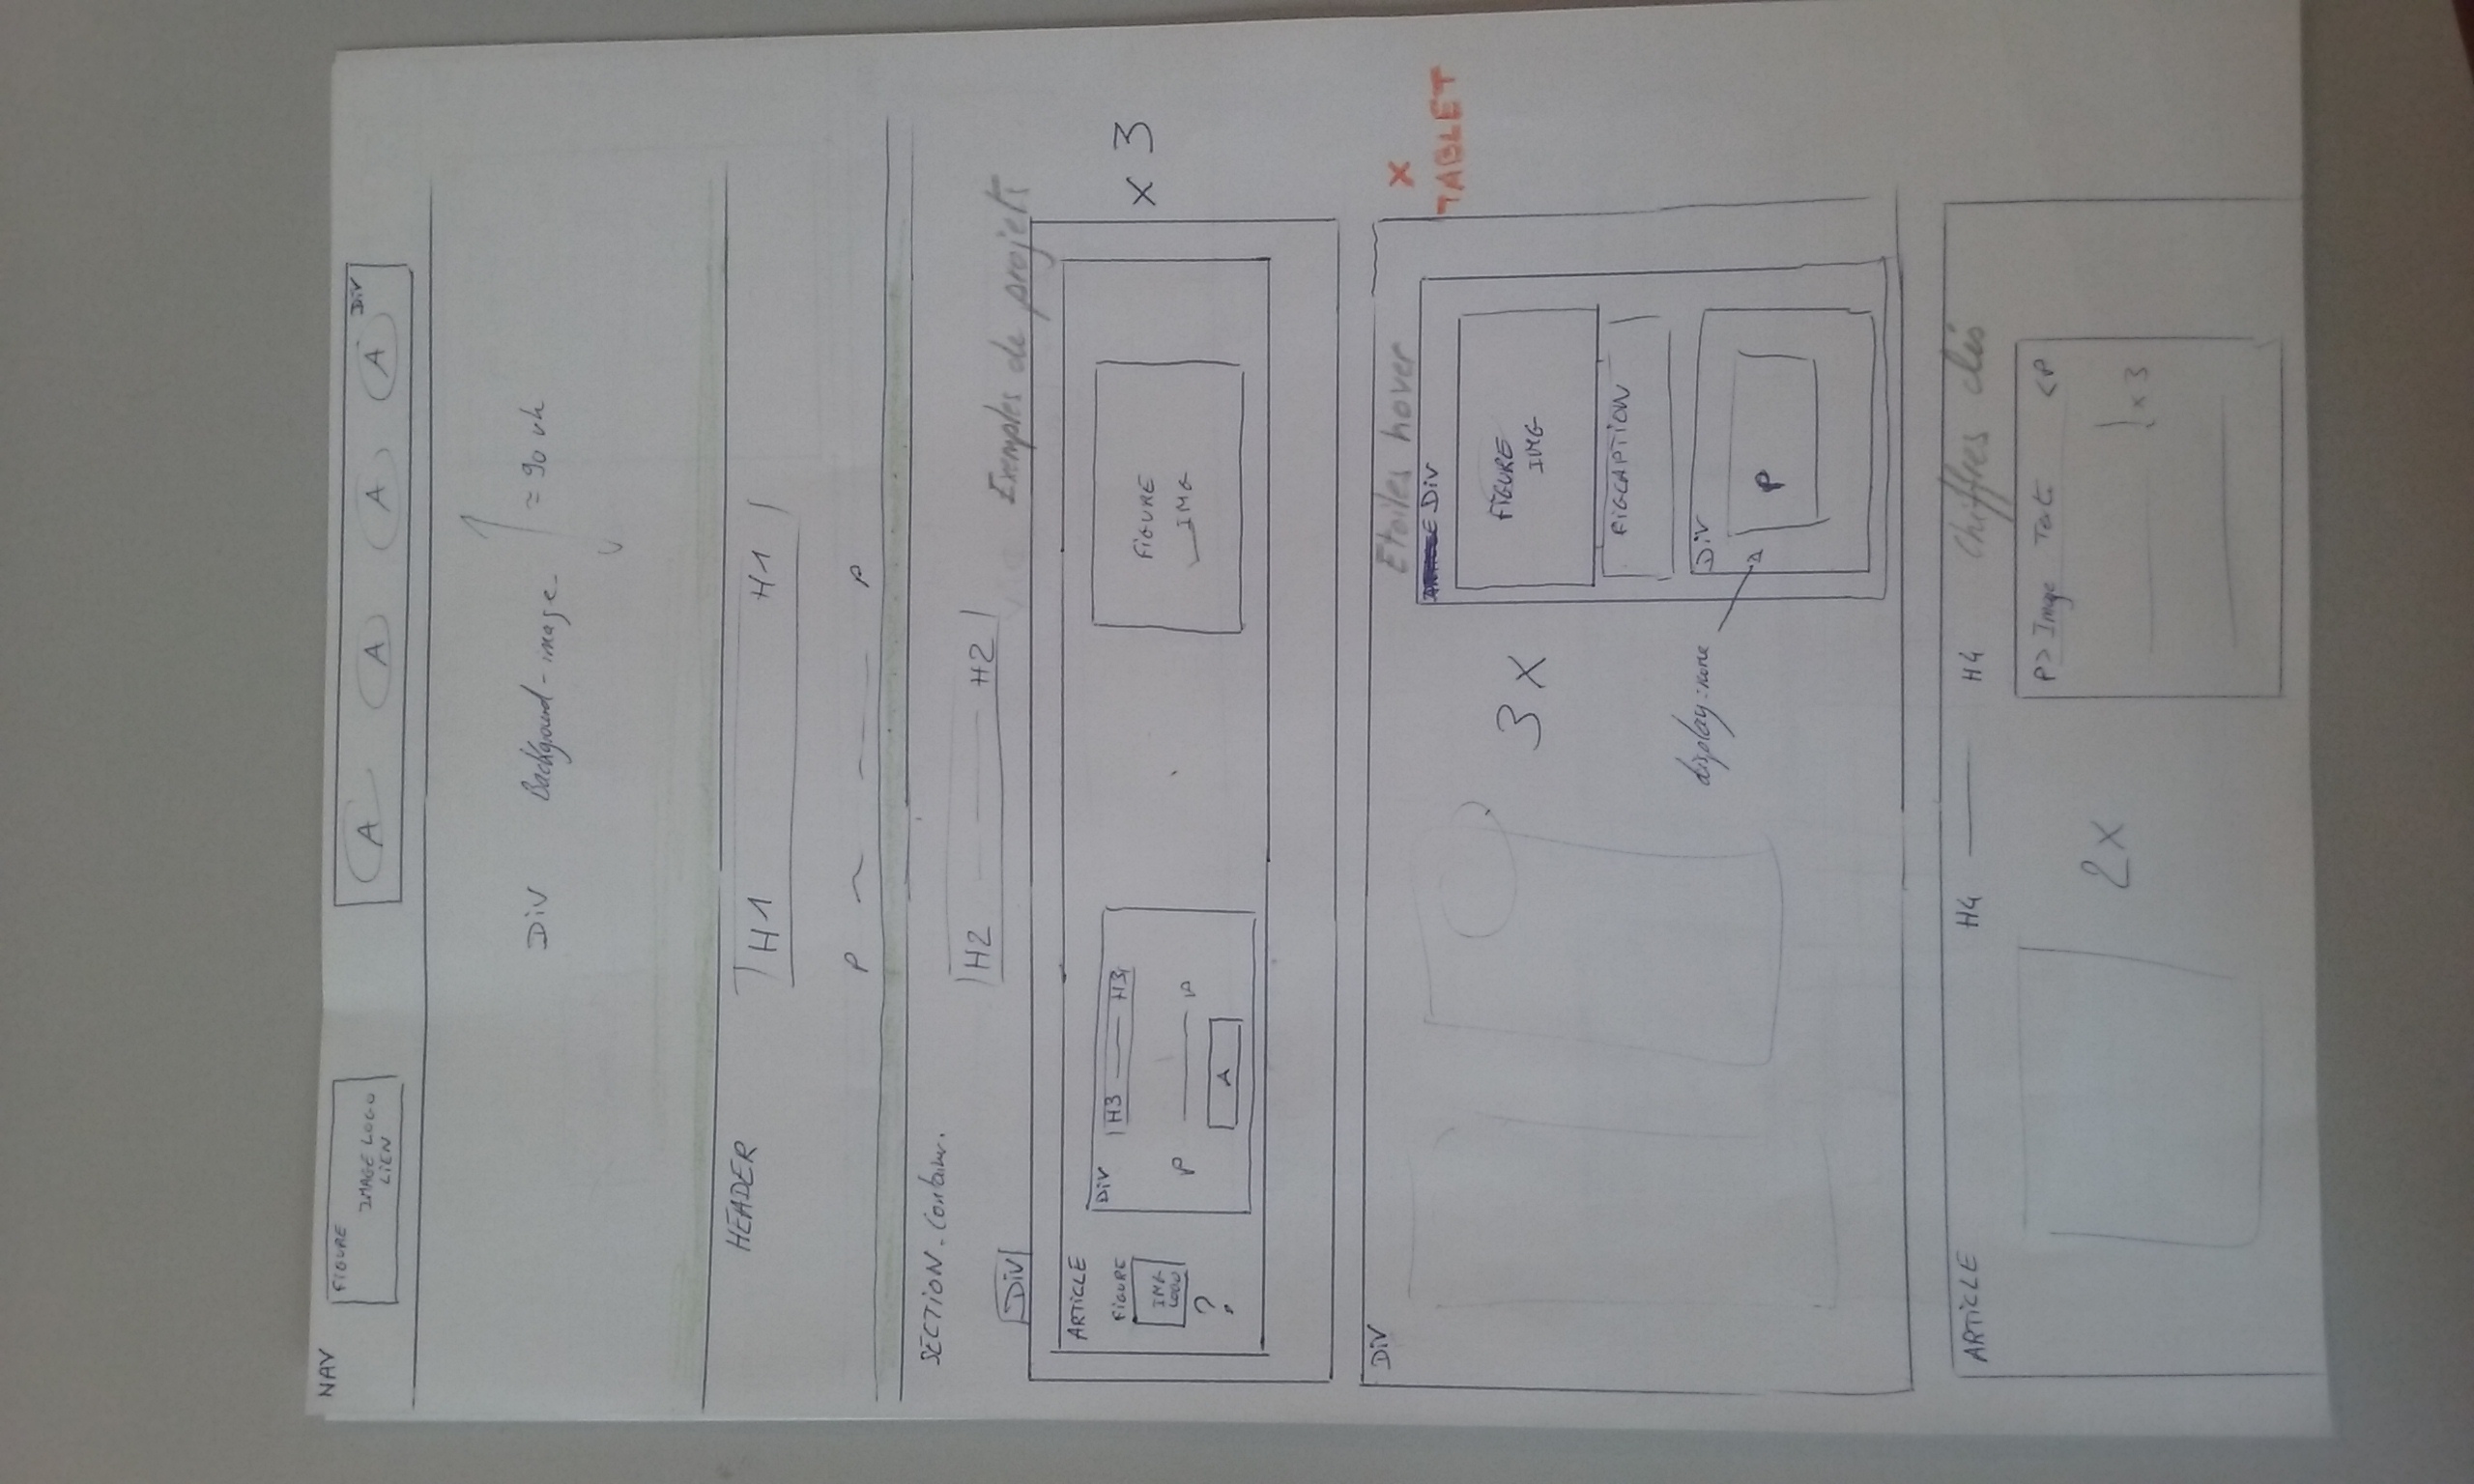 NAV
FIGURE
IMAGE LOGO
LIEN
A A A A
DiV
DiV Background-image ≃ 90 vh
HEADER
H1 H1
P P
SECTION.container
H2 H2
Exemples de projets
DiV
ARTICLE
FIGURE
IMG
LOGO
?
DiV
H3 H3
P P
A
FIGURE
IMG
x 3
DiV
Etoiles hover
X
TABLET
DiV
FIGURE
IMG
FIGCAPTION
DiV
P
3 X
display:none
ARTICLE
H4 H4
Chiffres clés
2 X
P> Image Text <P
x 3